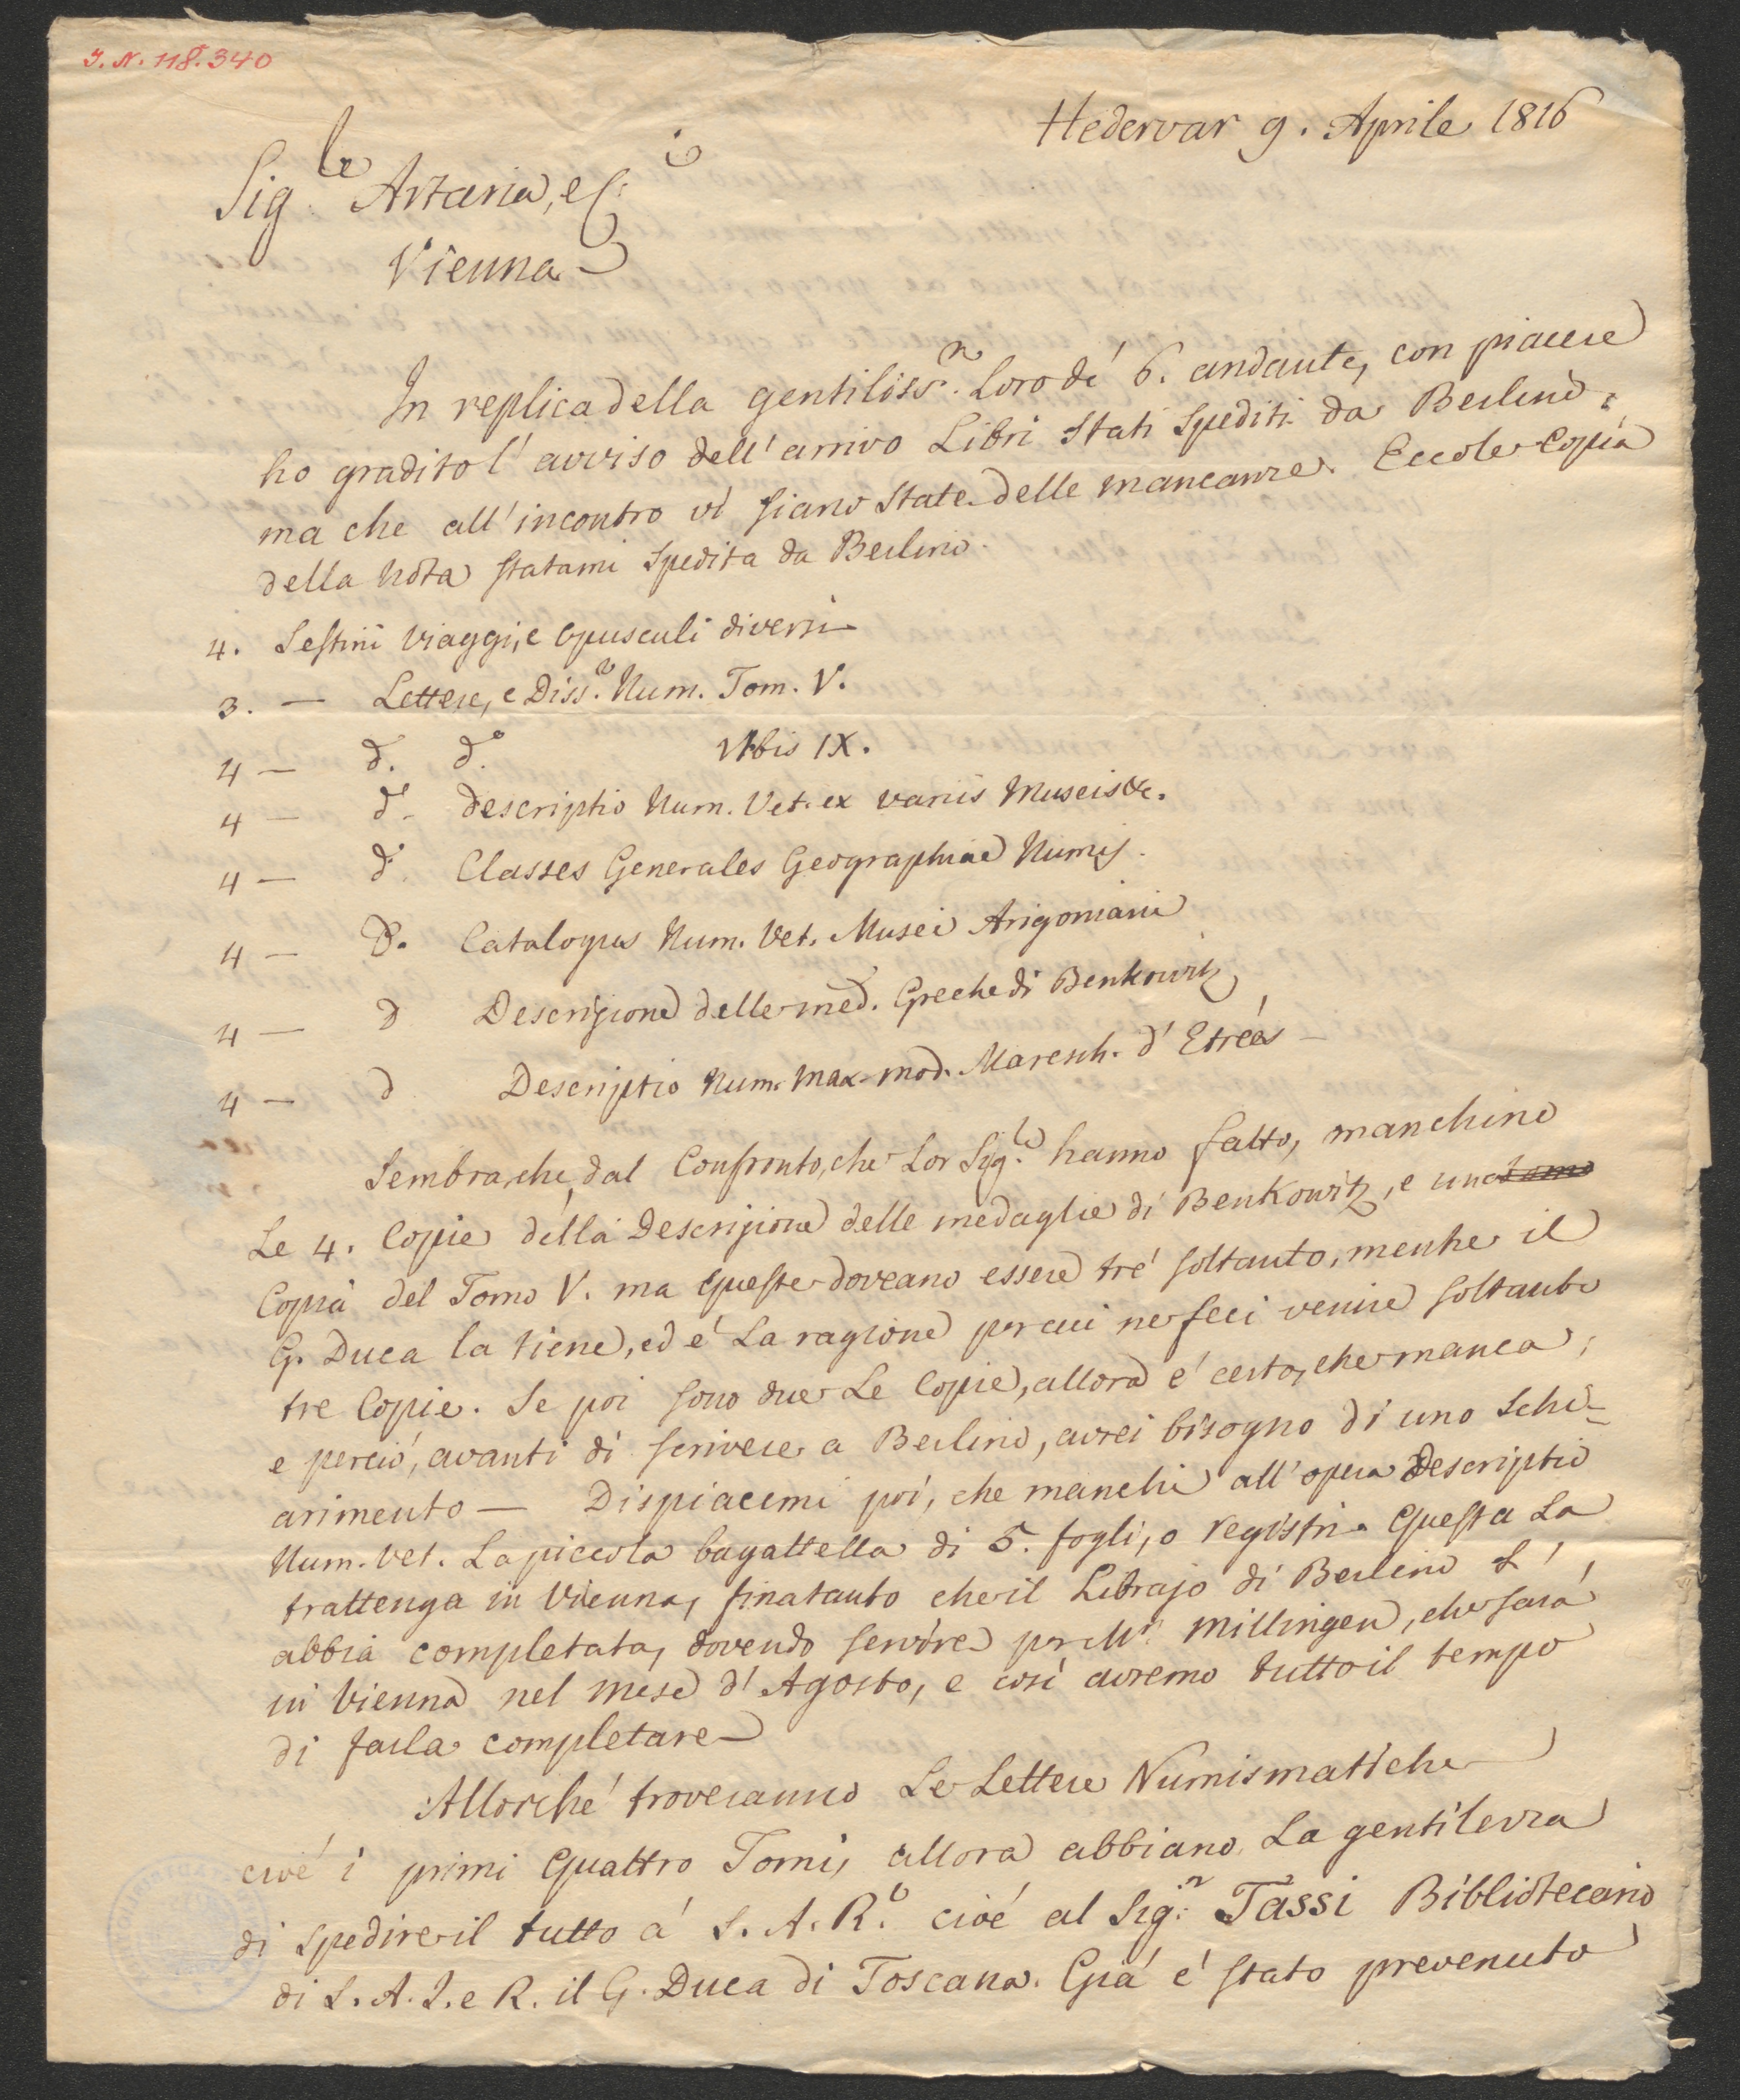 J. N. 118.340
Hedervar 9. Aprile 1816
Sig.le Artaria, e C.i
Vienna
In replica della gentiliss.n Loro dé 6. andante, con piacere
ho gradito l'avviso dell'arrivo Libri stati spediti da Berlino,
ma che all'incontro vi siano state delle mancanze. Eccole Copia
della Nota statami spedita da Berlino.
4. Sestini Viaggi, e Opusculi diversi
3. — Lettere, e Diss.e Num. Tom. V.
4 — d. d.o VIbis IX.
4 — d.o descriptio Num. Vet. ex variis Museis &c.
4 — d.o Classes Generales Geographiae Numis.
4 — D. Catalogus Num. Vet. Musei Arigoniani
4 — D Descrizione delle med. Greche di Benkowitz
4 — D Descriptio Num. Max. mod. Maresch. d'Etrées —
Sembra, che dal Confronto, che Lor Sig.i hanno fatto, manchino
Le 4. Copie della Descrizione delle medaglie di Benkowitz, e una
Copia del Tomo V. ma queste doveano essere tré soltanto, mentre il
G. Duca la tiene, ed é La ragione per cui ne feci venire soltanto
tre Copie. Se poi sono due Le Copie, allora é certo, che manca;
e perció, avanti di scrivere a Berlino, avrei bisogno di uno schi-
arimento — Dispiacemi poi, che manchi all'opera Descriptio
Num. Vet. La piccola bagattella di 5. fogli, o registri. Questa La
trattenga in Vienna, finatanto che il Librajo di Berlino L'
abbia completata, dovendo servire per Mr. Millingen, che sará
in Vienna nel mese d'Agosto, e cosi avremo tutto il tempo
di farla completare —
Allorché troveranno Le Lettere Numismatiche
cioé i primi Quattro Tomi, allora abbiano La gentilezza
di spedire il tutto á S. A. R.e cioé al Sig.r Tassi Bibliotecario
di S. A. I. e R. il G. Duca di Toscana. Giá é stato prevenuto